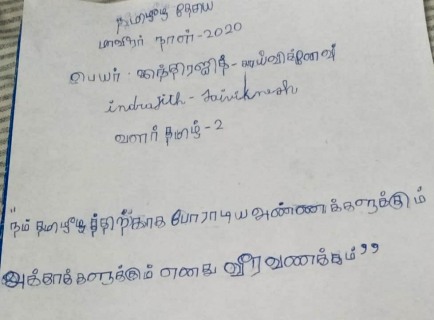 தமிழீழ தேசிய
மாவீரர் நாள்-2020
பெயர் : இந்திரஜித் - சாய்விக்னேஷ்
indrajith - Saiviknesh
வளர் தமிழ் - 2
"நம் தமிழீழத்திற்காக போராடிய அண்ணாக்களுக்கும்
அக்காக்களுக்கும் எனது வீர வணக்கம்"